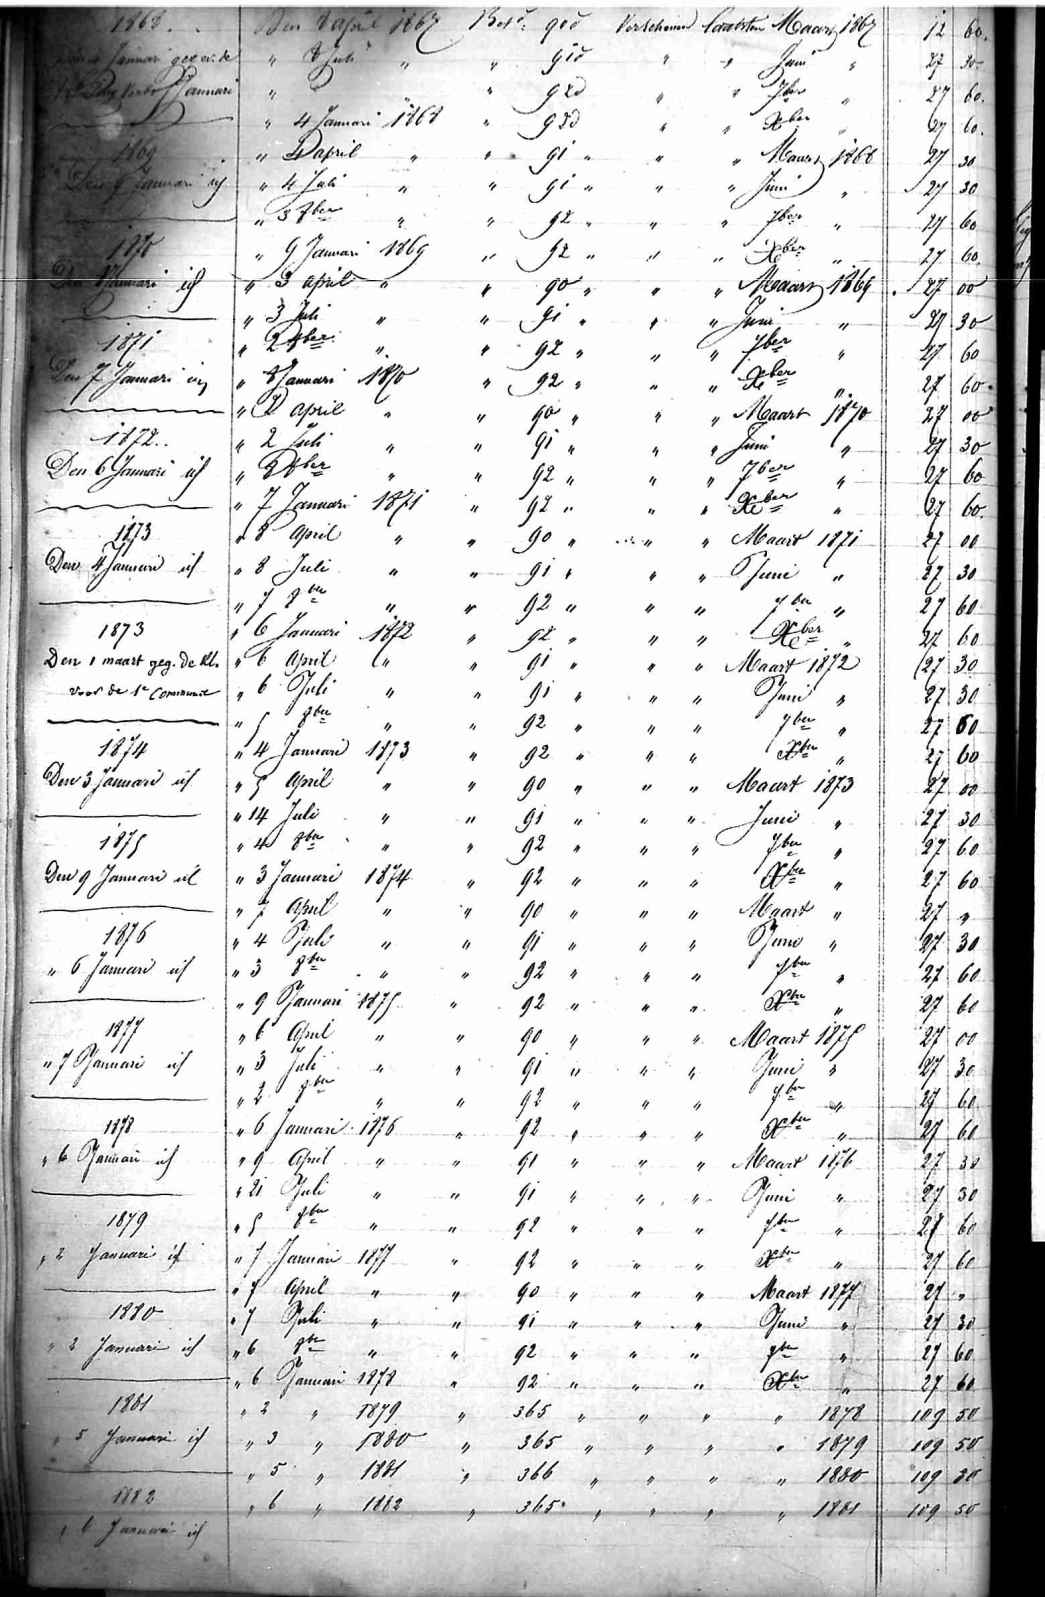 1868
Den 8 april 1867 Bet. 90d Verschenen laatsten Maart 1867 12 60.
" 8 Juli " " 91d " " Juni " 27 30
" " 92d " " 7ber " 27 60.
" 4 Januari 1868 " 92d " " Xber " 27 60.
1869
" 4 april " " 91 " " " Maart 1868 27 30
Den 9 Januari ich
" 4 Juli " " 91 " " " Juni " 27 30
" 3 8ber " " 92 " " " 7ber " 27 60
1870
" 9 Januari 1869 " 92 " " " Xber " 27 60.
Den 8 Januari ich
" 3 april " " 90 " " " Maart 1869 27 00
" 3 Juli " " 91 " " " Juni " 27 30
1871
" 2 8ber " " 92 " " " 7ber " 27 60
Den 7 Januari ich
" 8 Januari 1870 " 92 " " " Xber " 27 60
" 2 april " " 90 " " " Maart 1870 27 00
1872..
" 2 Juli " " 91 " " " Juni " 27 30
Den 6 Januari ich
" 8ber " " 92 " " " 7ber " 27 60
" 7 Januari 1871 " 92 " " " Xber " 27 60.
1873
" 8 april " " 90 " " " Maart 1871 27 00
Den 4 Januari ich
" 8 Juli " " 91 " " " Juni " 27 30
" 7 8ber " " 92 " " " 7ber " 27 60
1873
" 6 Januari 1872 " 92 " " " Xber " 27 60
Den 1 maart geg. de Kl.
" 6 April " " 91 " " " Maart 1872 27 30
voor de 1e Communie
" 6 Juli " " 91 " " " Juni " 27 30
" 5 8ber " " 92 " " " 7ber " 27 60
1874
" 4 Januari 1873 " 92 " " " Xber " 27 60
Den 3 Januari ich
" 5 April " " 90 " " " Maart 1873 27 00
" 14 Juli " " 91 " " " Juni " 27 30
1875
" 4 8ber " " 92 " " " 7ber " 27 60
Den 9 Januari ich
" 3 Januari 1874 " 92 " " " Xber " 27 60
" 7 April " " 90 " " " Maart " 27 "
1876
" 4 Juli " " 91 " " " Juni " 27 30
" 6 Januari ich
" 3 8ber " " 92 " " " 7ber " 27 60
" 9 Januari 1875 " 92 " " " Xber " 27 60
1877
" 6 April " " 90 " " " Maart 1875 27 00
" 7 Januari ich
" 3 Juli " " 91 " " " Juni " 27 30
" 2 8ber " " 92 " " " 7ber " 27 60
1878
" 6 Januari 1876 " 92 " " " Xber " 27 60
" 6 Januari ich
" 9 April " " 91 " " " Maart 1876 27 30
" 21 Juli " " 91 " " " Juni " 27 30
1879
" 5 8ber " " 92 " " " 7ber " 27 60
" 2 Januari ich
" 7 Januari 1877 " 92 " " " Xber " 27 60
" 7 April " " 90 " " " Maart 1877 27 "
1880
" 7 Juli " " 91 " " " Juni " 27 30
" 2 Januari ich
" 6 8ber " " 92 " " " 7ber " 27 60
" 6 Januari 1878 " 92 " " " Xber " 27 60
1881
" 2 " 1879 " 365 " " " " 1878 109 50
" 5 Januari ich
" 3 " 1880 " 365 " " " " 1879 109 50
" 5 " 1881 " 366 " " " " 1880 109 80
1882
" 6 " 1882 " 365 " " " " 1881 109 50
" 6 Januari ich